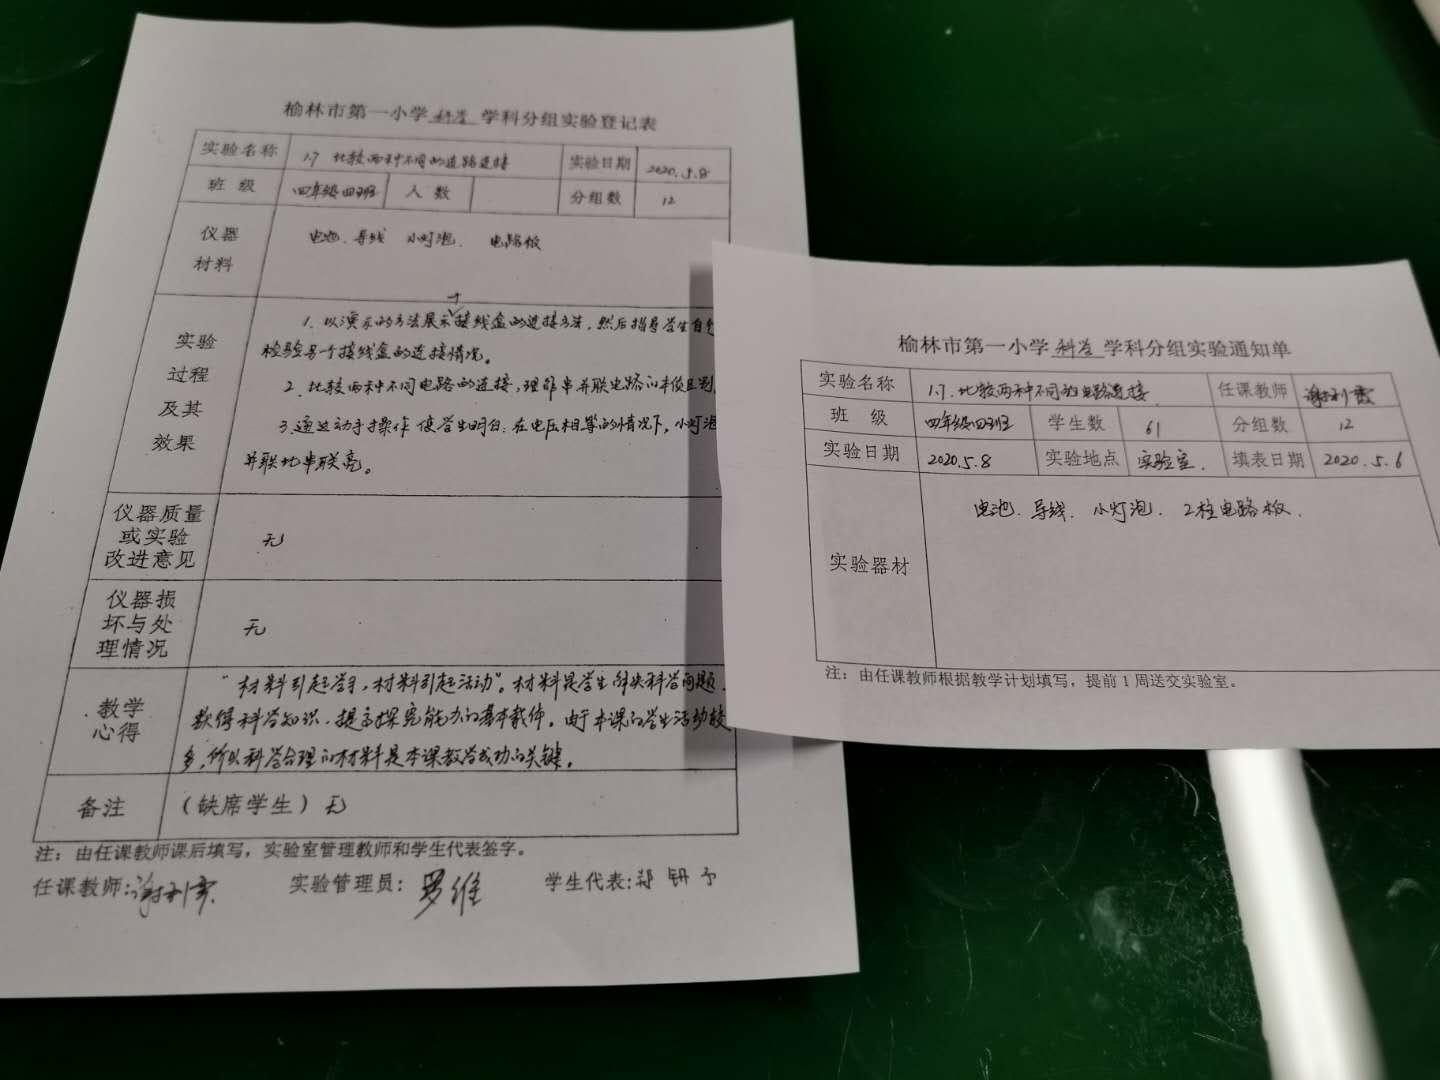 榆林市第一小学 科学 学科分组实验登记表
实验名称 1.7 比较两种不同的电路连接 实验日期 2020.5.8
班 级 四年级四班 人 数 分组数 12
仪器
材料
电池、导线 小灯泡、 电路板
实验
过程
及其
效果
1、以演示的方法展示接线盒的连接方法，然后指导学生自行
检验另一个接线盒的连接情况。
2、比较两种不同电路的连接，理解串并联电路的本质区别。
3、通过动手操作 使学生明白：在电压相等的情况下，小灯泡
并联比串联亮。
仪器质量
或实验
改进意见
无
仪器损
坏与处
理情况
无
教学
心得
“材料引起学习，材料引起活动”。材料是学生解决科学问题、
获得科学知识、提高探究能力的基本载体。由于本课的学生活动较
多，所以科学合理的材料是本课教学成功的关键。
备注 （缺席学生）无
注：由任课教师课后填写，实验室管理教师和学生代表签字。
任课教师: 谢利霞 实验管理员：罗维 学生代表: 郑钥予
榆林市第一小学 科学 学科分组实验通知单
实验名称 1.7、比较两种不同的电路连接 任课教师 谢利霞
班 级 四年级四班 学生数 61 分组数 12
实验日期 2020.5.8 实验地点 实验室. 填表日期 2020.5.6
实验器材
电池、导线、小灯泡、2柱电路板、
注：由任课教师根据教学计划填写，提前1周送交实验室。